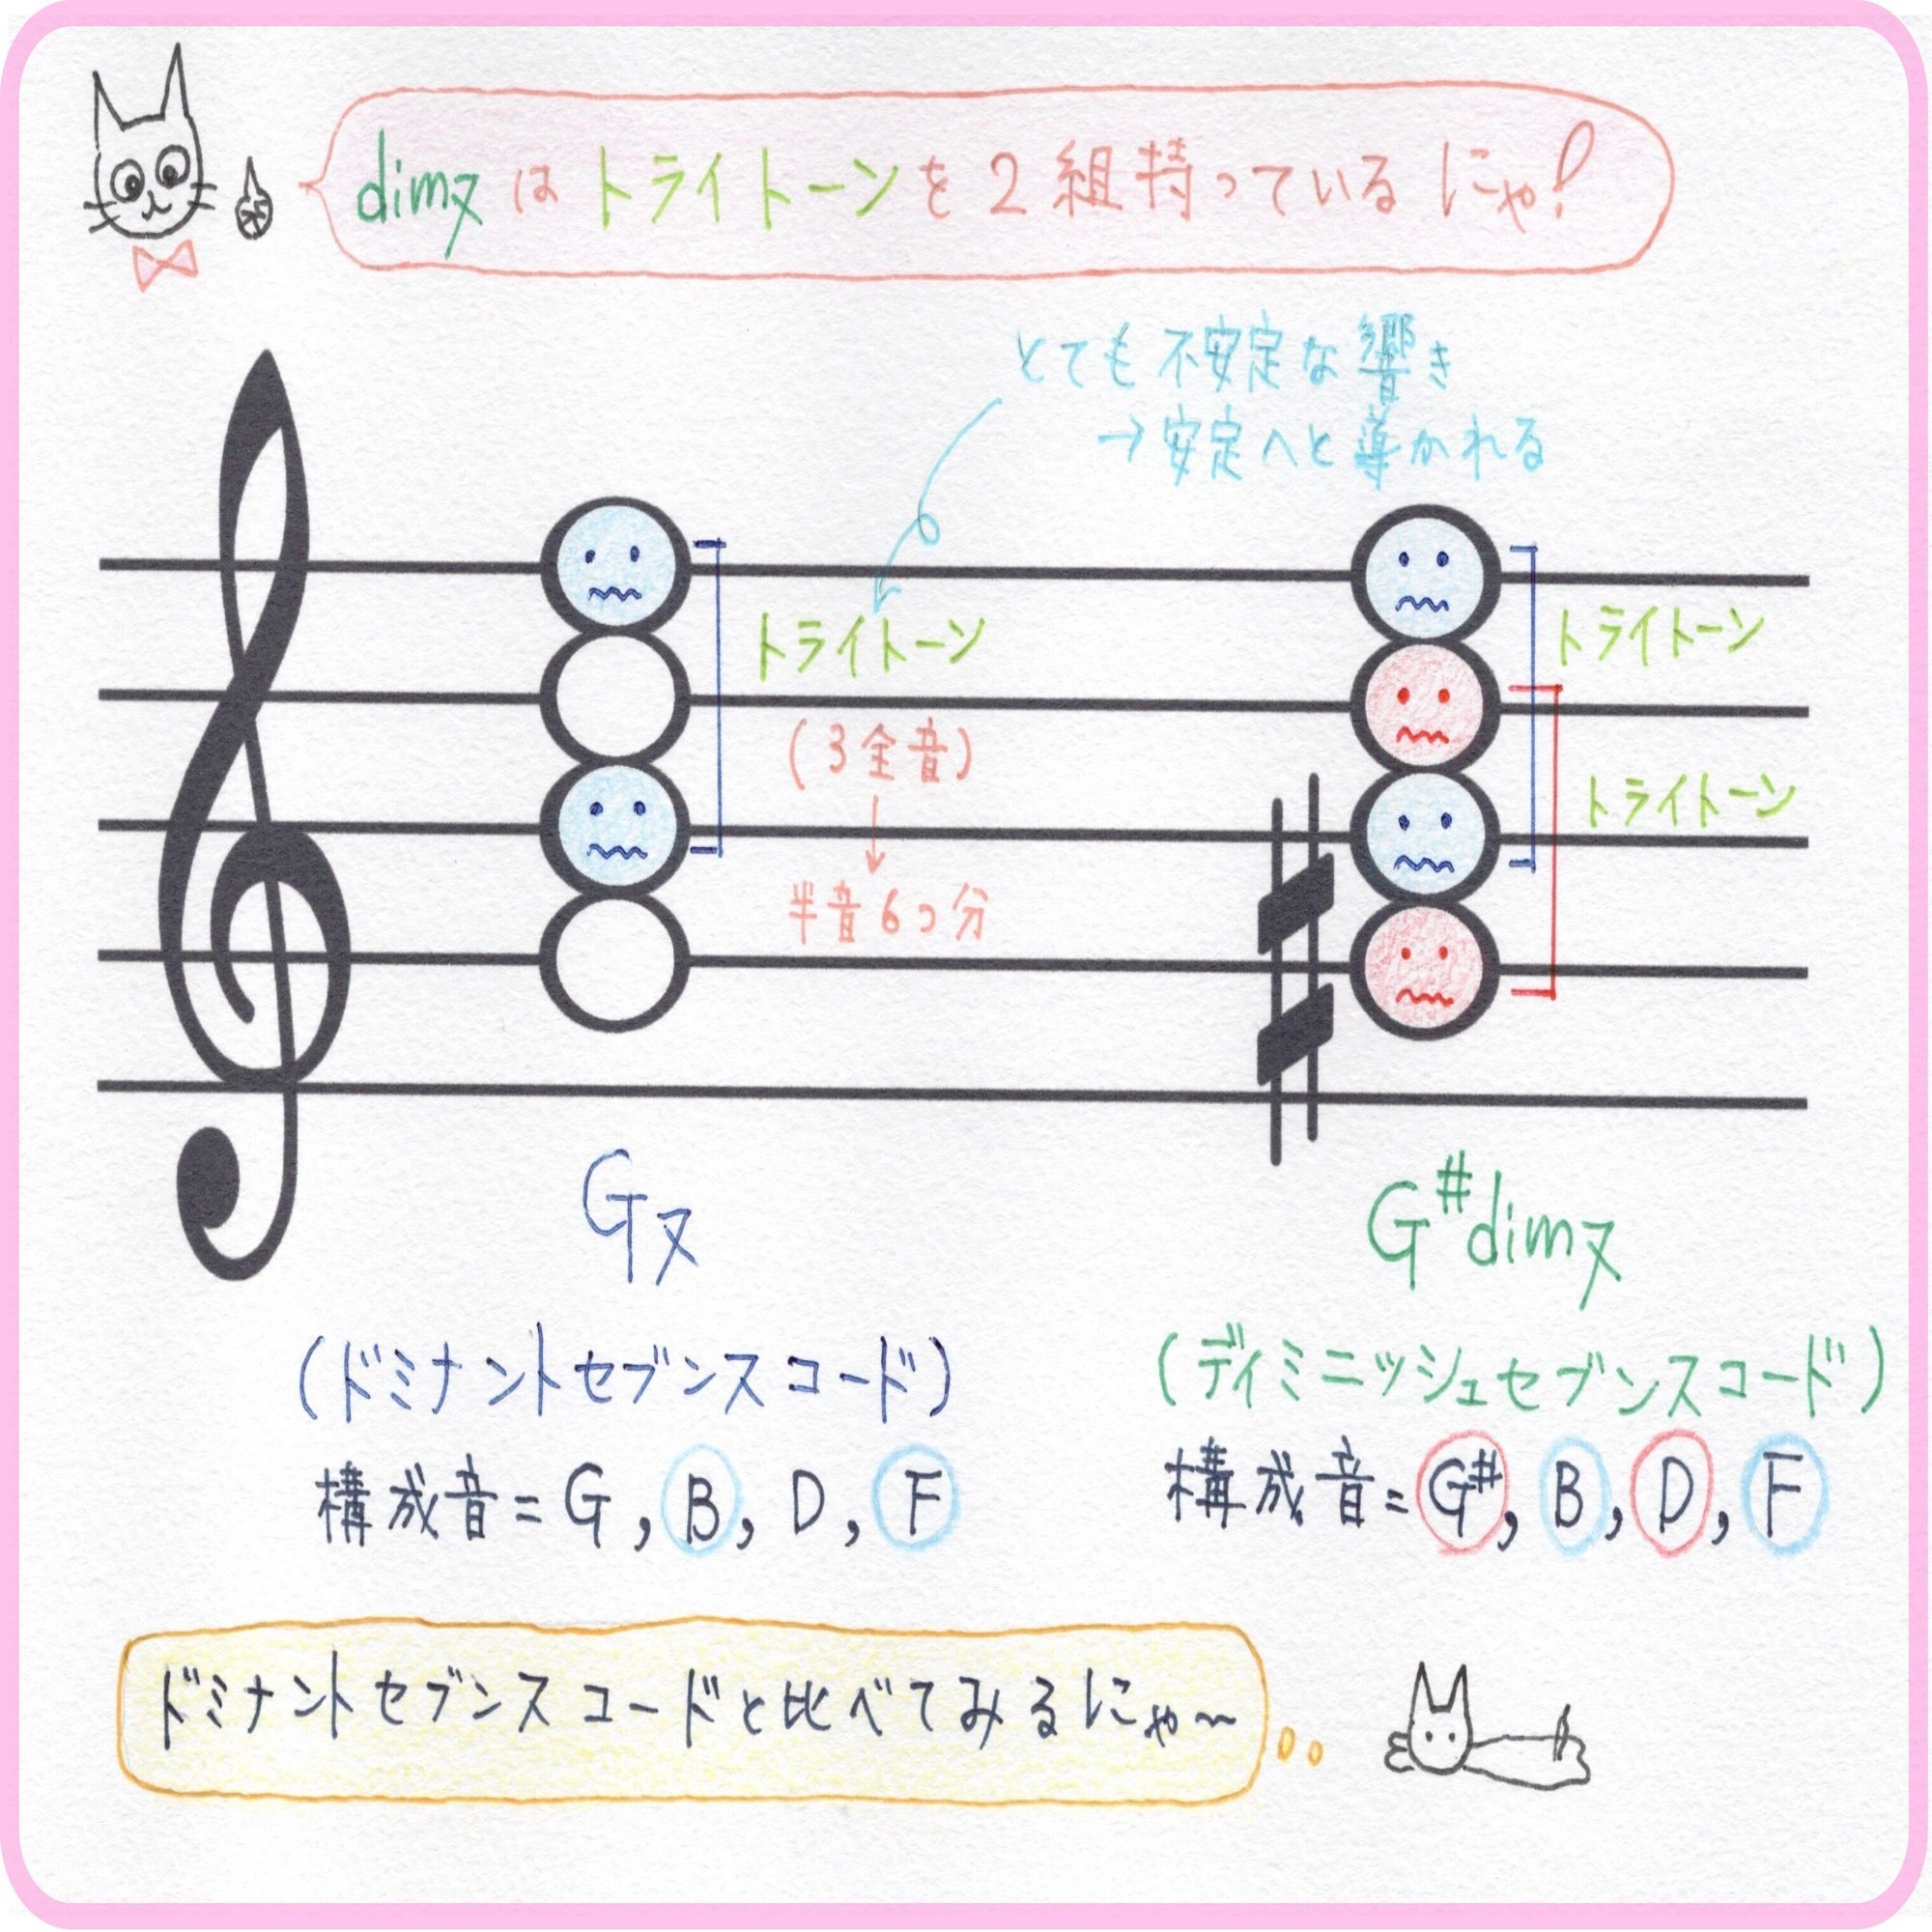 dim7はトライトーンを2組持っているにゃ!
とても不安定な響き
→安定へと導かれる
トライトーン
(3全音)
半音6コ分
トライトーン
トライトーン
G7
(ドミナントセブンスコード)
構成音=G,B,D,F
G#dim7
(ディミニッシュセブンスコード)
構成音=G#,B,D,F
ドミナントセブンスコードと比べてみるにゃ~